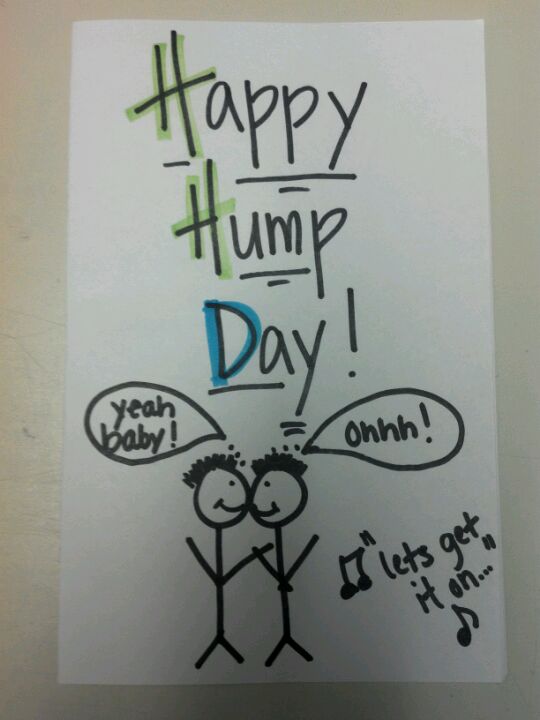 Happy
Hump
Day!
yeah
baby!
ohhh!
"lets get
it on..."